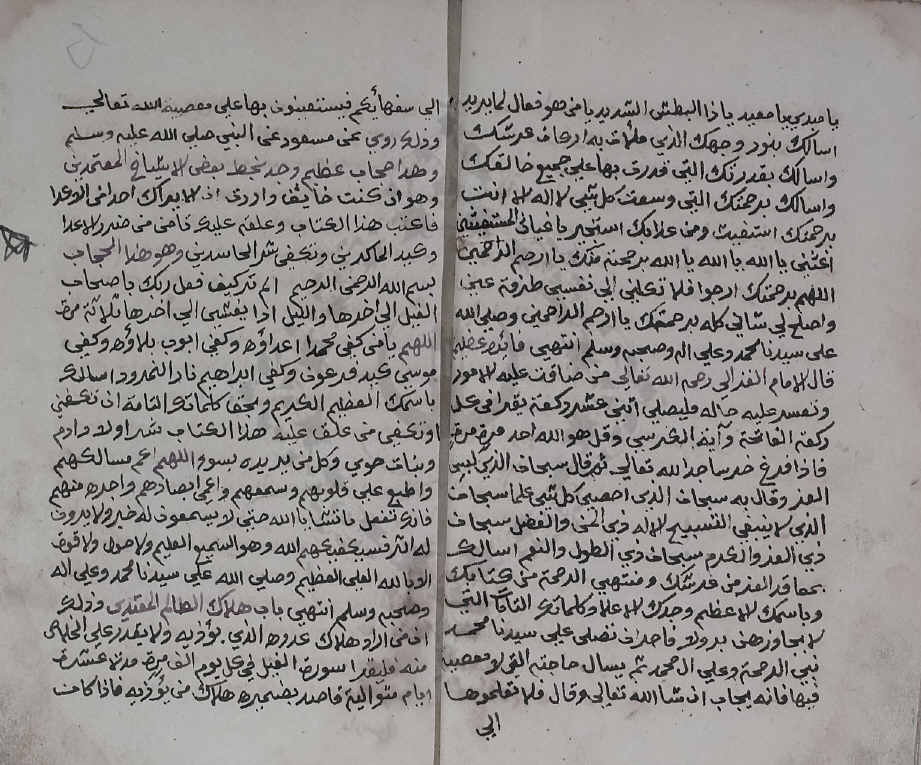 يا مبدئ يا معيد يا ذا البطش الشديد يا من هو فعال لما يريد
اسالك بنور وجهك الذي ملأت به اركان عرشك
واسالك بقدرتك التي قدرت بها على جميع خالقك
واسالك برحمتك التي وسعت كل شي لا اله الا انت
برحمتك استغيث ومن عذابك استجير يا غياث المستغيثين
اغثني يا الله يا الله يا الله برحمة منك يا ارحم الراحمين
اللهم برحمتك ارجوا فلا تكلني الى نفسي طرفة عين
واصلح لي شاني كله برحمتك يا ارحم الراحمين وصلى الله
على سيدنا محمد وعلى اله وصحبه وسلم انتهى فائدة عظيم
قال الامام الغزالي رحمه الله تعالى من ضاقت عليه الامور
وتعسر عليه حاله فليصلي اثني عشر ركعة يقرا في كل
ركعة الفاتحة وآية الكرسي وقل هو الله احد مرة مرة
فاذا فرغ خر ساجدا لله تعالى ثم قال سبحان الذي لبس
العز وقال به سبحان الذي احصى كل شي علما سبحان
الذي لا ينبغي التسبيح الا له ذي المن والفضل سبحان
ذي العز والكرم سبحان ذي الطول والنعم اسالك
بمعاقد العز من عرشك ومنتهى الرحمة من كتابك
وباسمك الاعظم وجدك الاعلا وكلماتك التامات التي
لا يجاوزهن بر ولا فاجر ان تصلي على سيدنا محمد
نبي الرحمة وعلى ال محمد ثم يسال حاجته التي لا معصية
فيها فانه يجاب ان شا الله تعالى وقال فلا تعلموها
الى
الى سفهائكم فيستعينون بها على معصية الله تعالى
وذلك روي عن مسعود عن النبي صلى الله عليه وسلم
وهذا حجاب عظيم وجد بخط بعض الاشياخ المعتمدين
وهو ان كنت خايف واردت ان لا يدراك احد من الاعدا
فاكتب هذا الكتاب وعلقه عليك تامن من ضرر الاعدا
وكيد الماكرين وتكفى شر الحاسدين وهو هذا الحجاب
بسم الله الرحمن الرحيم الم تر كيف فعل ربك باصحاب
الفيل الى اخرها والليل اذا يغشى الى اخرها ثلاثة مرة
اللهم يا من كفى محمدا اعداؤه وكفى ايوب بلاؤه وكفى
موسى كيد فرعون وكفى ابراهيم نار النمرود اسالك
باسمك العظيم الكريم وبحق كلماتك التامة ان تكفني
وتكفي من علق عليه هذا الكتاب شر اولاد ادم
وبنات حوى وكل من يريده بسوء اللهم اعم مسالكهم
واطبع على قلوبهم وسمعهم واعمي ابصارهم واحدة منهم
فانك تفعل ما تشا يا الله حتى لا يسمعون له خبر ولا يرون
له اثر فسيكفيكهم الله وهو السميع العليم ولا حول ولا قوة
الا بالله العلي العظيم وصلى الله على سيدنا محمد وعلى اله
وصحبه وسلم انتهى باب هلاك الظالم المعتدي وذلك
ان من اراد هلاك عدوه الذي يؤذيه ولا يقدر على الخلاص
منه فليقرا سورة الفيل في كل يوم الف مرة مدة عشرة
ايام متوالية قاصد بضميره هلاك من يؤذيه فاذا كانت